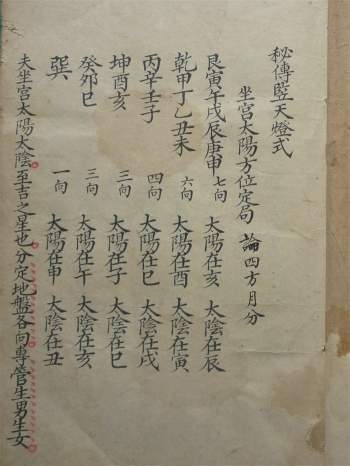 秘傳竪天燈式
坐宫太陽方位定局 論四方月分
艮寅午戌辰庚申 七向 太陽在亥 太陰在辰
乾甲丁乙丑未 六向 太陽在酉 太陰在寅
丙辛壬子 四向 太陽在巳 太陰在戌
坤酉亥 三向 太陽在子 太陰在巳
癸夘巳 三向 太陽在午 太陰在亥
巽 一向 太陽在申 太陰在丑
夫坐宫太陽太陰至吉之星也分定地盤各向專管生男生女